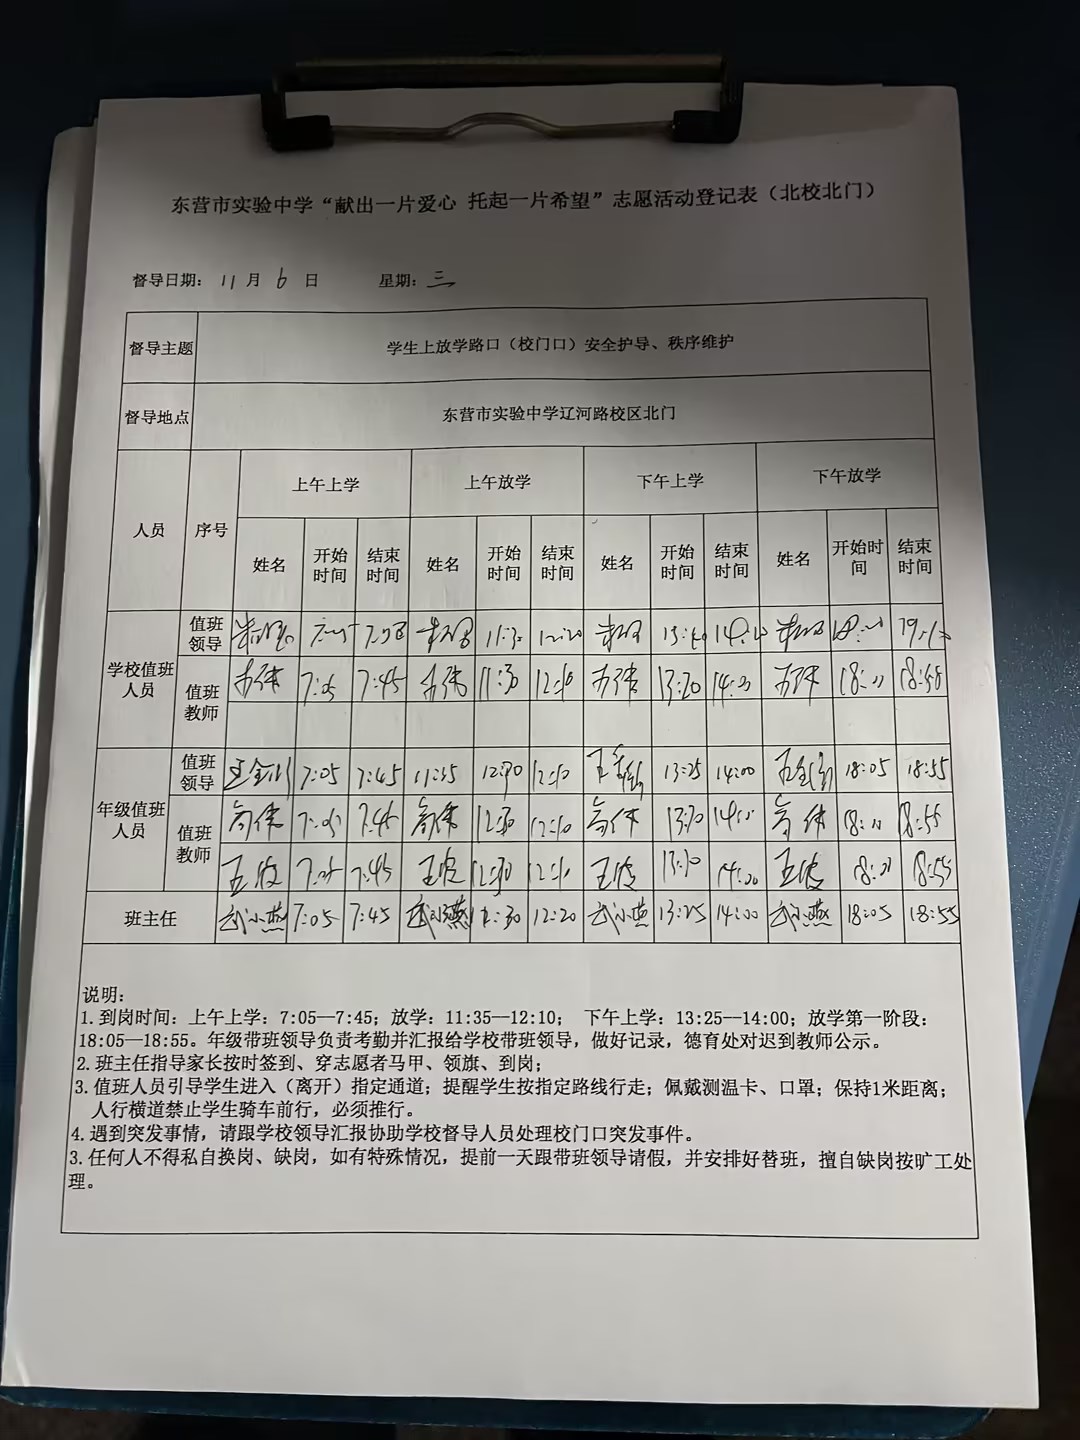 东营市实验中学“献出一片爱心 托起一片希望”志愿活动登记表（北校北门）
督导日期： 11 月 6 日 星期：三
督导主题 学生上放学路口（校门口）安全护导、秩序维护
督导地点 东营市实验中学辽河路校区北门
人员 序号 上午上学 上午放学 下午上学 下午放学
姓名 开始时间 结束时间 姓名 开始时间 结束时间 姓名 开始时间 结束时间 姓名 开始时间 结束时间
学校值班人员 值班领导
值班教师 7:05 7:45 11:30 12:10 13:20 18:55
年级值班人员 值班领导 7:05 7:45 11:35 12:10 13:25 14:00 18:05 18:55
值班教师 高伟 7:05 7:45 高伟 12:10 高伟 高伟 18:55
王波 7:45 王波 王波 王波 18:55
班主任 武小燕 7:05 7:45 武小燕 12:30 12:20 武小燕 13:25 14:00 武小燕 18:05 18:55
说明：
1.到岗时间：上午上学：7:05—7:45；放学：11:35—12:10； 下午上学：13:25—14:00；放学第一阶段：
18:05—18:55。年级带班领导负责考勤并汇报给学校带班领导，做好记录，德育处对迟到教师公示。
2.班主任指导家长按时签到、穿志愿者马甲、领旗、到岗；
3.值班人员引导学生进入（离开）指定通道；提醒学生按指定路线行走；佩戴测温卡、口罩；保持1米距离；
人行横道禁止学生骑车前行，必须推行。
4.遇到突发事情，请跟学校领导汇报协助学校督导人员处理校门口突发事件。
3.任何人不得私自换岗、缺岗，如有特殊情况，提前一天跟带班领导请假，并安排好替班，擅自缺岗按旷工处
理。